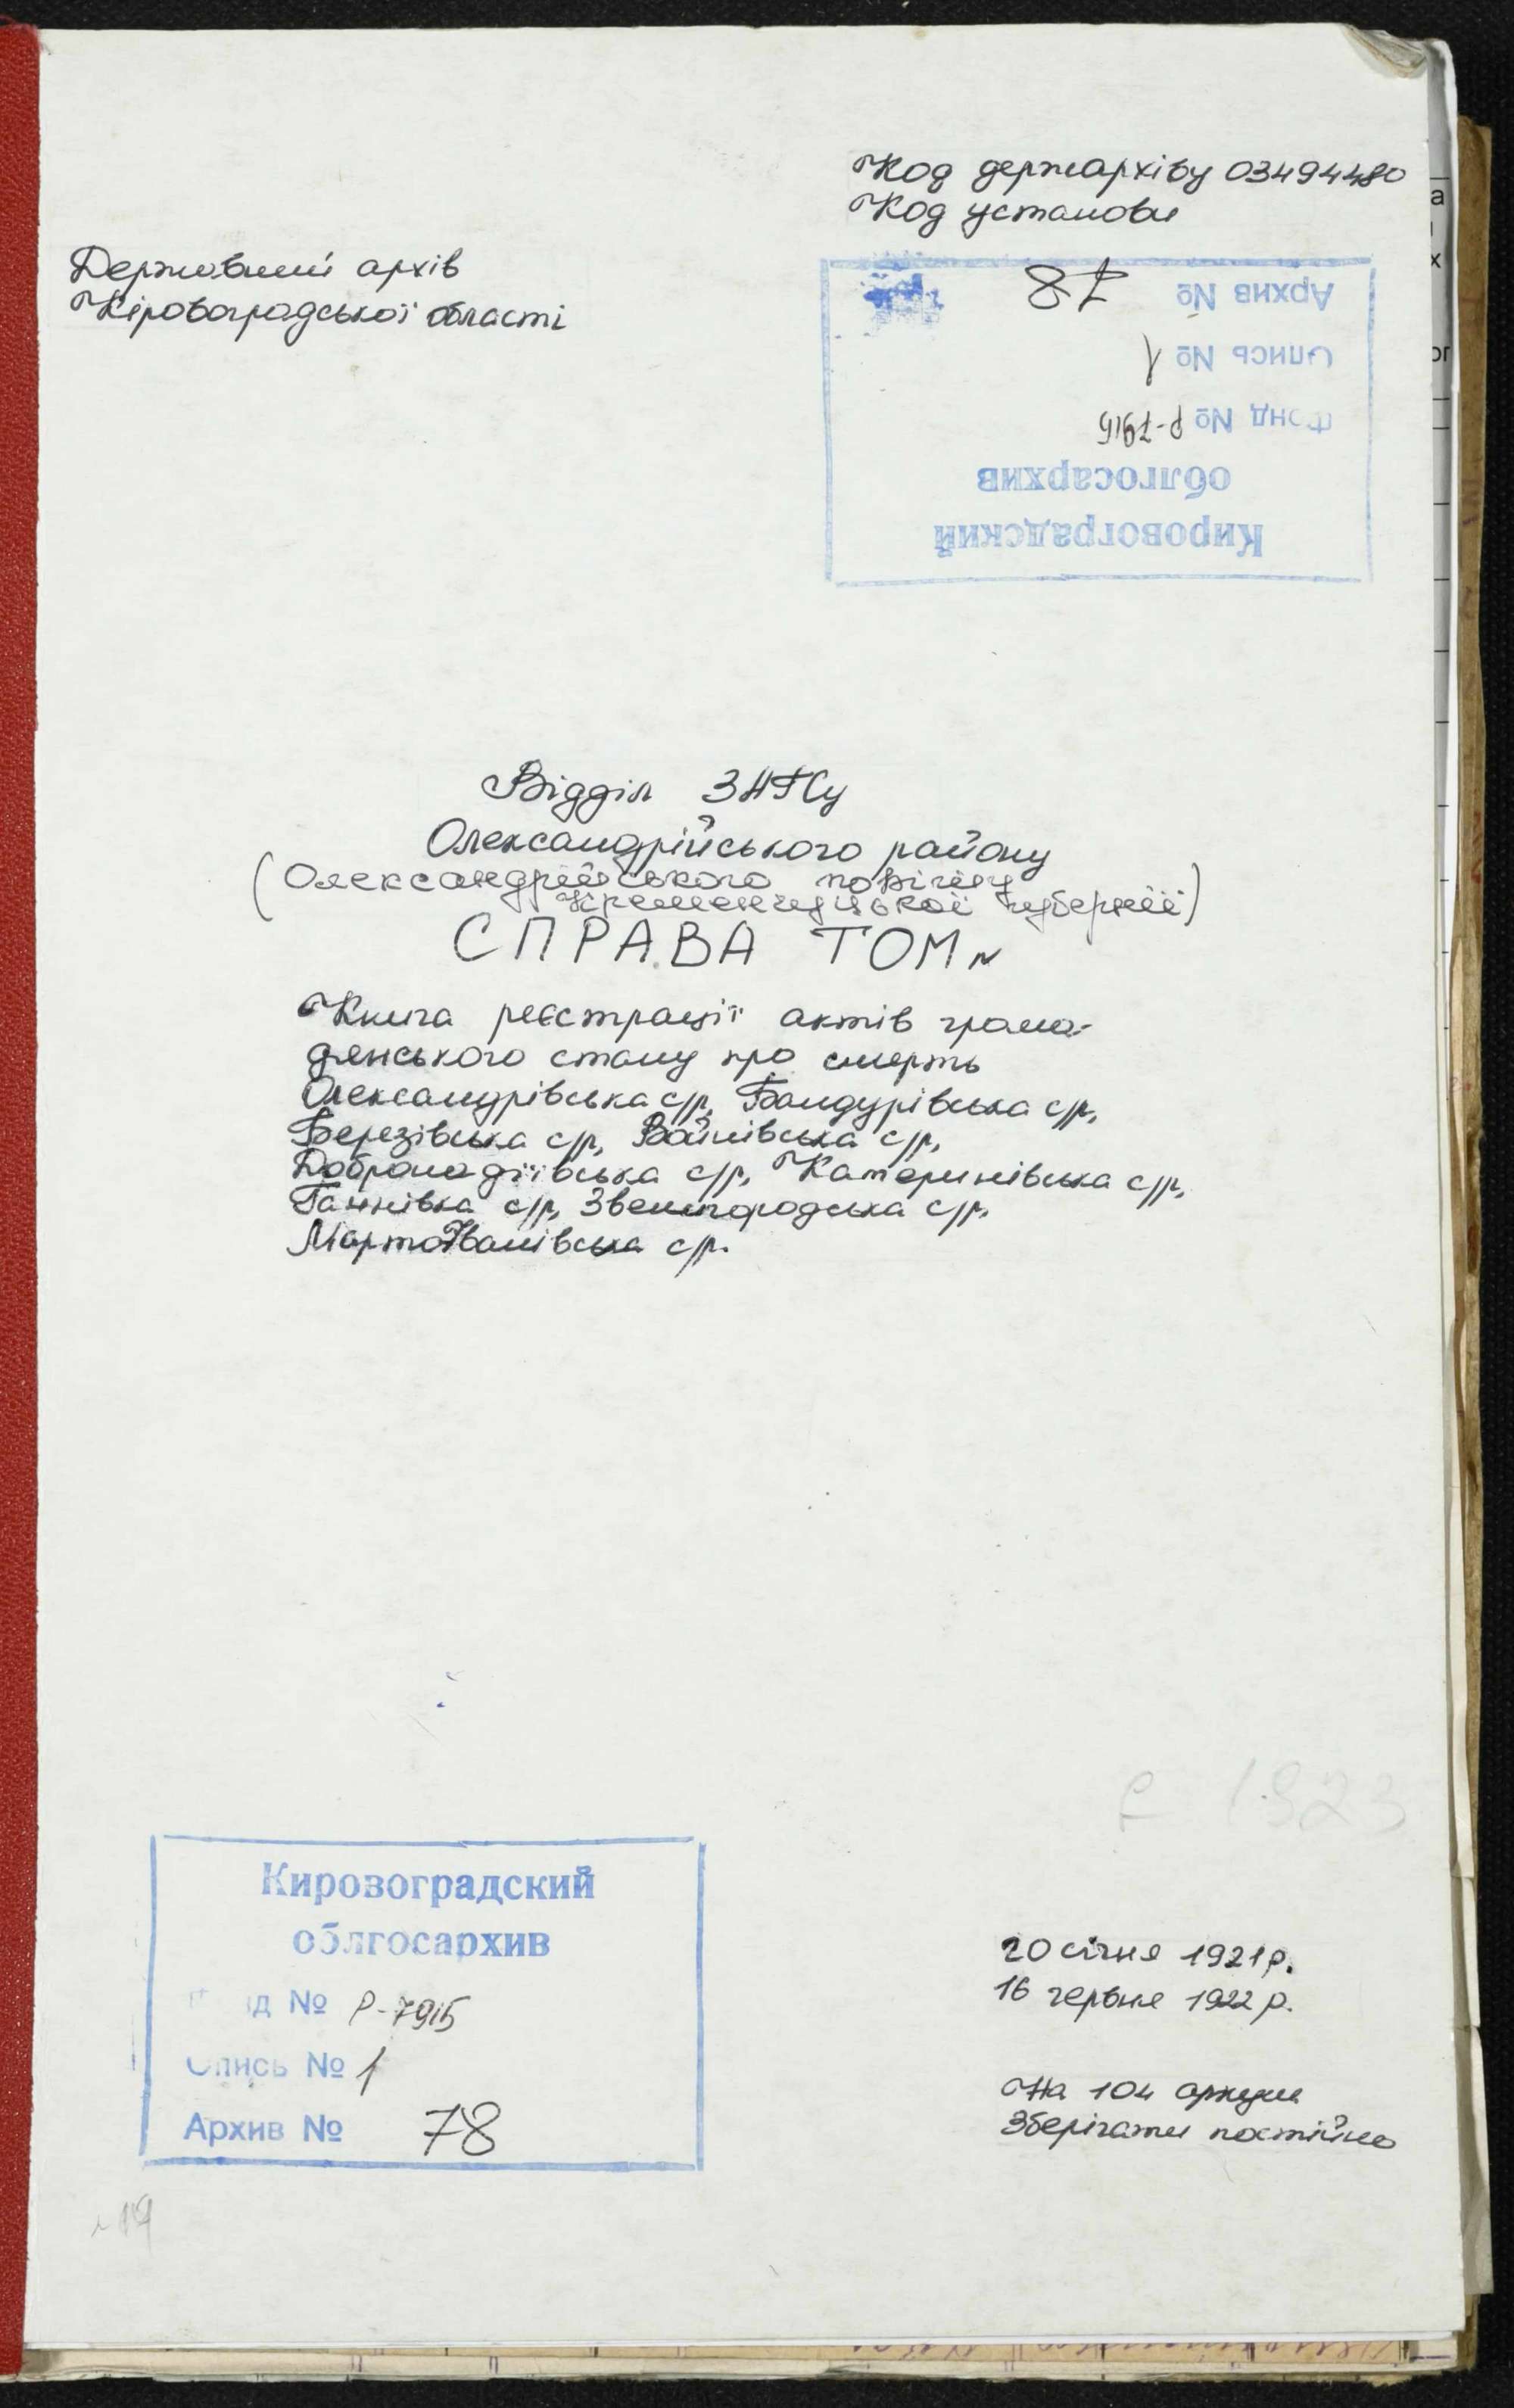 Код держархіву 03494480
Код установи
Державний архів
Кіровоградської області
Архив № 78
Опись № 1
Фонд № Р-7915
облгосархив
Кировоградский
Відділ ЗАГСу
Олександрійського району
(Олександрійського повіту
Кременчуцької губернії)
СПРАВА ТОМ №
Книга реєстрації актів грома-
дянського стану про смерть
Олександрівська с/р, Бандурівська с/р,
Березівська с/р, Войнівська с/р,
Доброна діївська с/р, Катеринівська с/р,
Ганнівка с/р, Звенигородська с/р,
МартоІванівська с/р.
1923
Кировоградский
облгосархив
Фонд № Р-7915
Опись № 1
Архив № 78
20 січня 1921 р.
16 червня 1922 р.
На 104 аркуші
Зберігати постійно